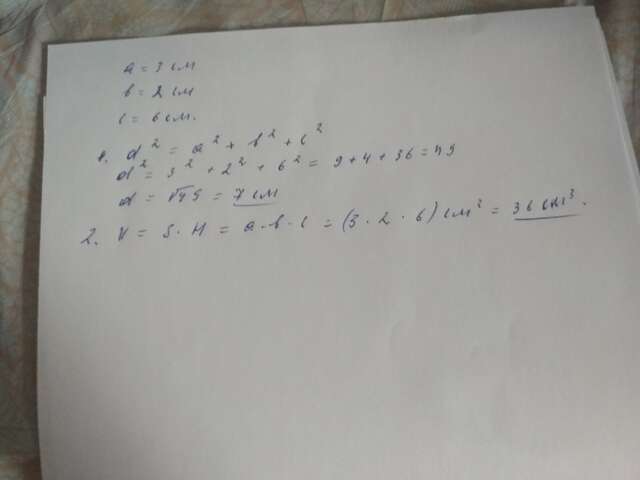 a = 3 см
в = 2 см
с = 6 см.
1. d² = a² + b² + c²
d² = 3² + 2² + 6² = 9 + 4 + 36 = 49
d = √49 = 7 см
2. V = S · H = a · b · c = (3 · 2 · 6) см³ = 36 см³.